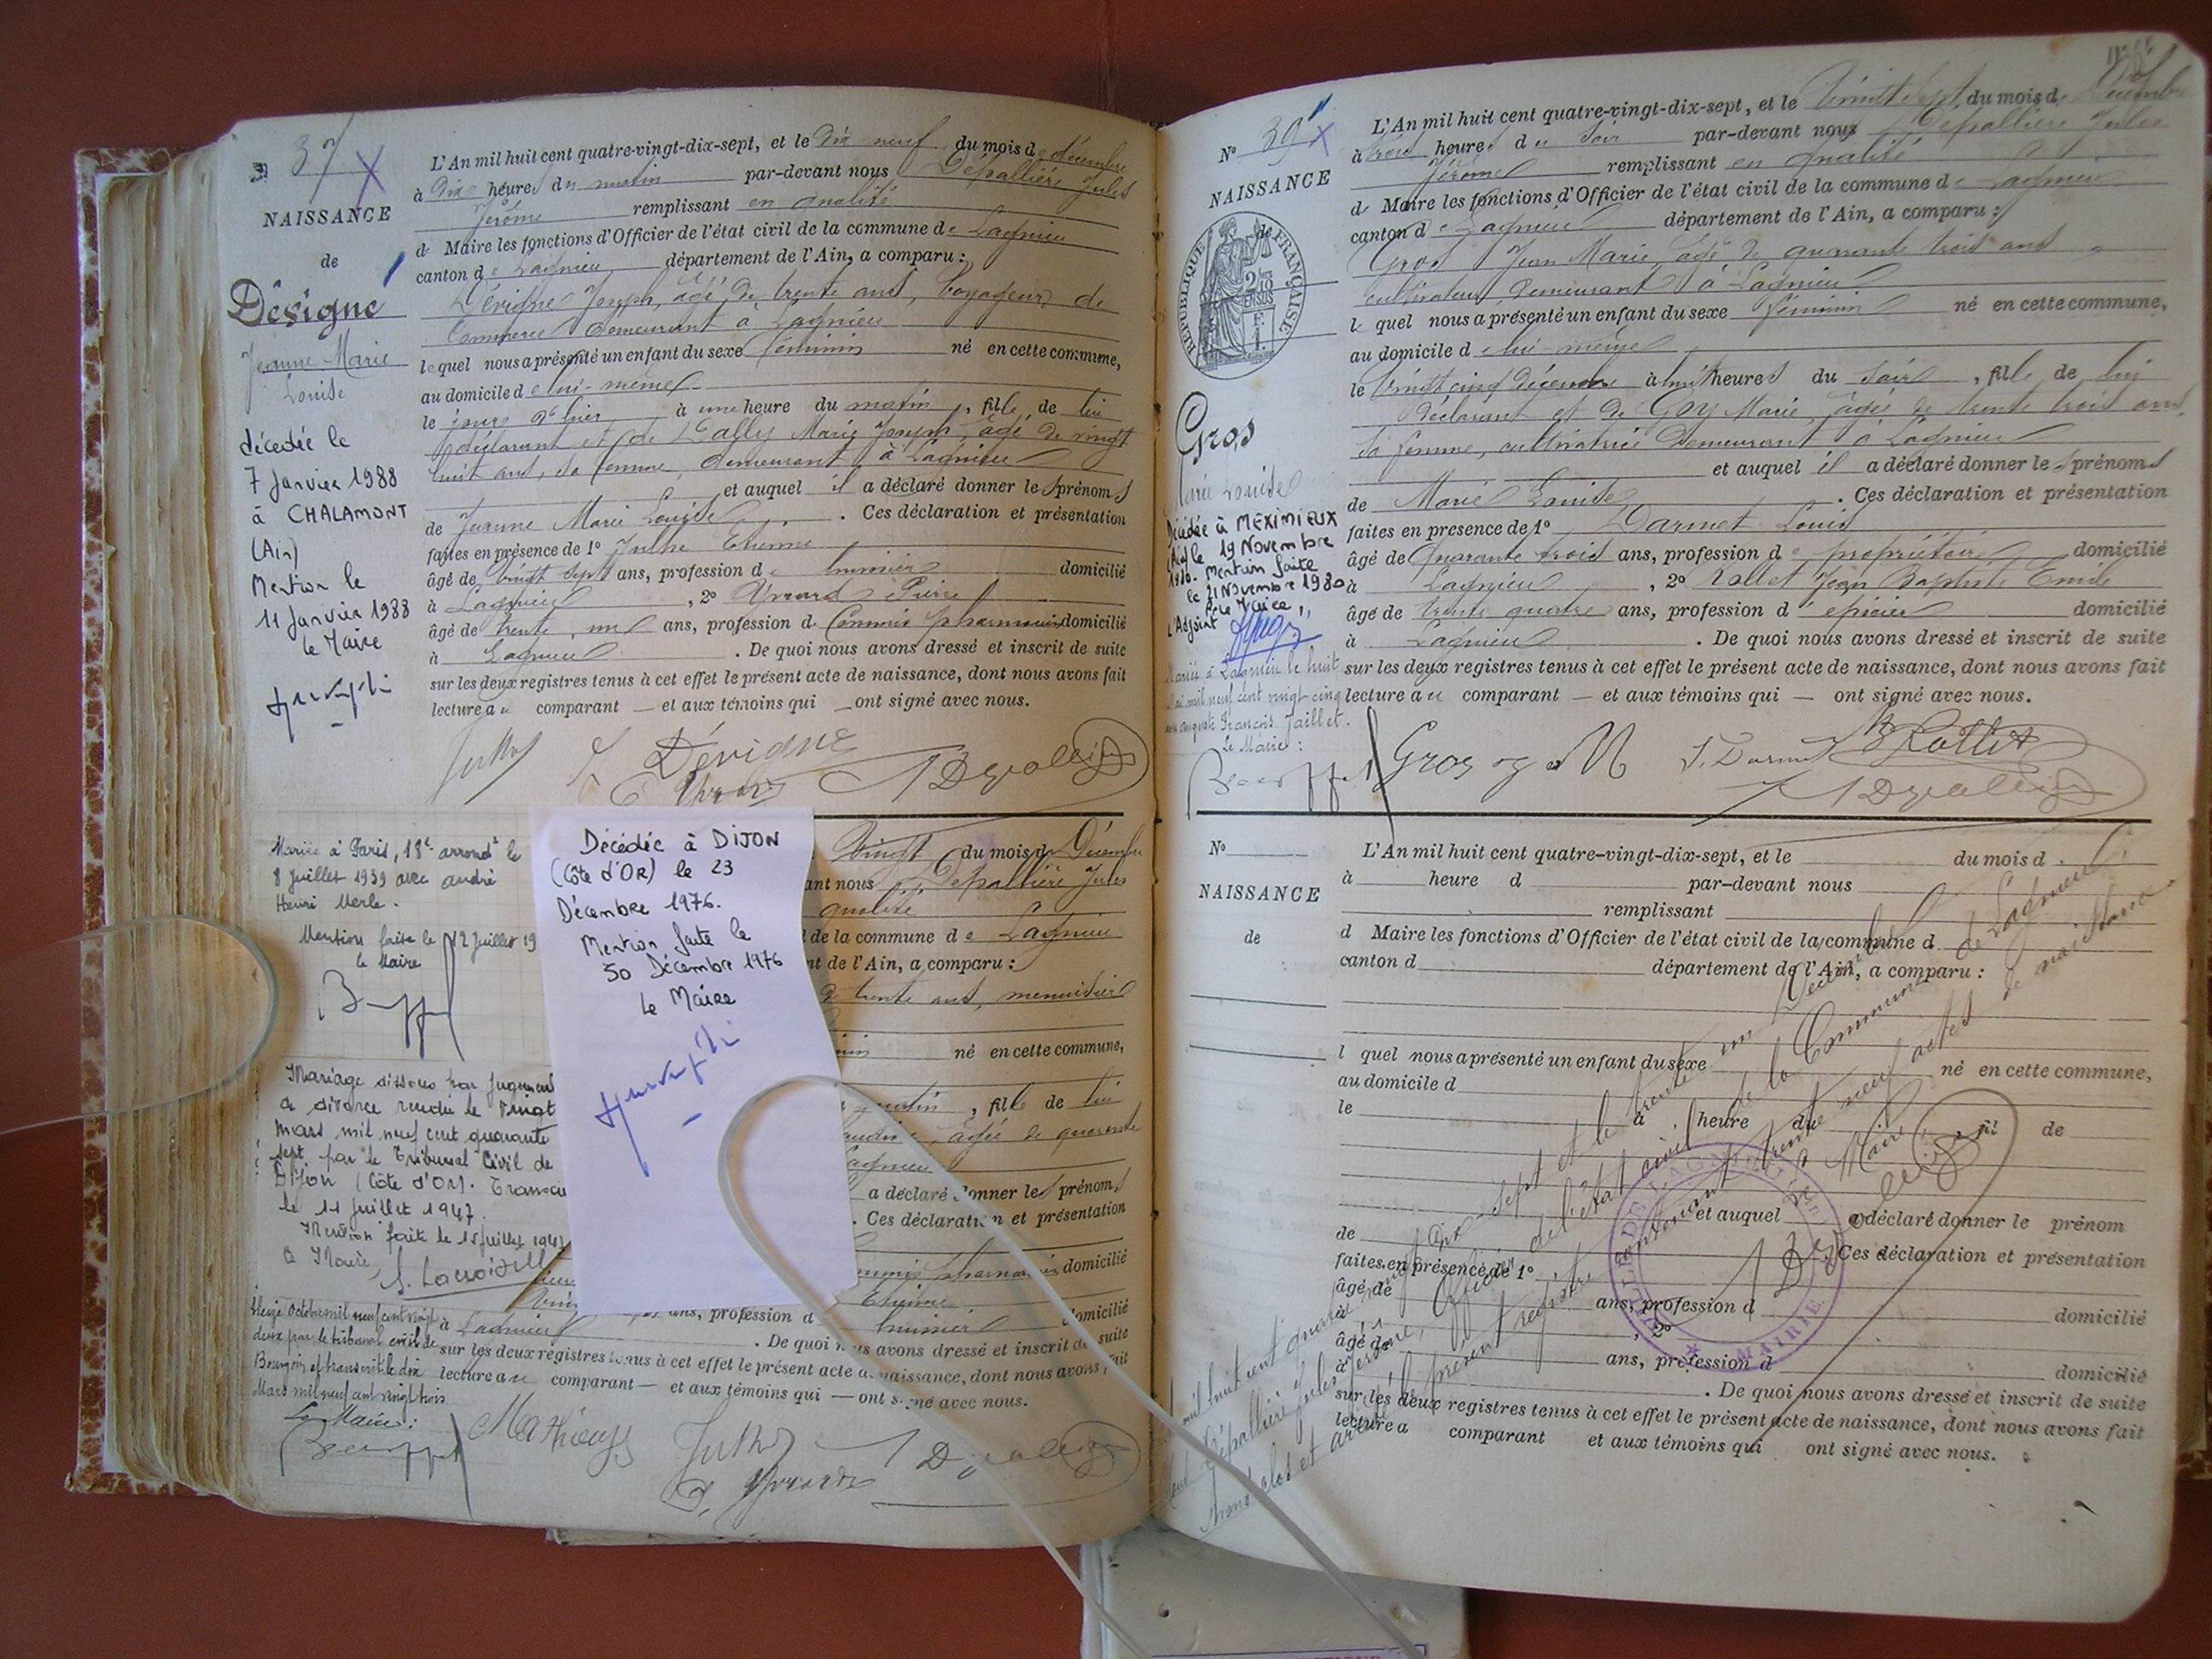 37
NAISSANCE
de
Désigne
Jeanne Marie
Louise
décédée le
7 Janvier 1988
à CHALAMONT
(Ain)
Mention le
11 Janvier 1988
le Maire
L'An mil huit cent quatre-vingt-dix-sept, et le dix neuf du mois de décembre
à dix heures du matin par-devant nous Dépallière Jules
Jérôme remplissant en qualité
de Maire les fonctions d'Officier de l'état civil de la commune de Lagnieu
canton de Lagnieu département de l'Ain, a comparu :
Dévigne Joseph, âgé de trente ans, voyageur de
commerce demeurant à Lagnieu
lequel nous a présenté un enfant du sexe féminin né en cette commune,
au domicile de lui-même
le jour d'hier à une heure du matin, fille de lui
déclarant et de Marie Joseph, âgé de vingt
huit ans, sa femme, demeurant à Lagnieu
et auquel il a déclaré donner les prénoms
de Jeanne Marie Louise . Ces déclaration et présentation
faites en présence de 1° Etienne
âgé de vingt sept ans, profession de domicilié
à Lagnieu , 2° Pierre
âgé de trente un ans, profession de Commis pharmacien domicilié
à Lagnieu . De quoi nous avons dressé et inscrit de suite
sur les deux registres tenus à cet effet le présent acte de naissance, dont nous avons fait
lecture au comparant — et aux témoins qui — ont signé avec nous.
Dévigne
Mariée à Paris, 18e arrondt le
8 Juillet 1939 avec André
Henri Merle.
Mention faite le 12 Juillet 19
le Maire
Mariage dissous par jugement
de divorce rendu le vingt
mars mil neuf cent quarante
sept par le Tribunal Civil de
Dijon (Côte d'Or).
le 11 juillet 1947.
Mention faite le 15 juillet 1947
le Maire
octobre mil neuf cent vingt
deux par le tribunal civil de
Bourgoin et transcrit le dix
Mars mil neuf cent vingt trois
Le Maire :
Décédée à DIJON
(Côte d'OR) le 23
Décembre 1976.
Mention faite le
30 Décembre 1976
Le Maire
Vingt du mois de Décembre
ant nous Dépallière Jules
qualité
l de la commune de Lagnieu
nt de l'Ain, a comparu :
de trente ans, menuisier
né en cette commune,
matin , fille de lui
âgée de quarante
Lagnieu
a déclaré donner les prénoms
. Ces déclaration et présentation
pharmacien domicilié
Etienne
ans, profession d domicilié
à Lagnieu . De quoi nous avons dressé et inscrit de suite
sur les deux registres tenus à cet effet le présent acte de naissance, dont nous avons fait
lecture au comparant — et aux témoins qui — ont signé avec nous.
N° 39
NAISSANCE
de
RÉPUBLIQUE FRANÇAISE
Gros
Marie Louise
Décédée à MEXIMIEUX
le 19 Novembre
1980. Mention faite
le 21 Novembre 1980
L'Adjoint
Mariée à Lagnieu le huit
mil neuf cent vingt-cinq
François Jaillet.
Le Maire :
L'An mil huit cent quatre-vingt-dix-sept, et le Vingt Sept du mois de Décembre
à trois heures du soir par-devant nous Dépallière Jules
Jérôme remplissant en qualité
de Maire les fonctions d'Officier de l'état civil de la commune de Lagnieu
canton de Lagnieu département de l'Ain, a comparu :
Gros Jean Marie, âgé de quarante trois ans
cultivateur demeurant à Lagnieu
lequel nous a présenté un enfant du sexe féminin né en cette commune,
au domicile de lui-même
le Vingt cinq décembre à huit heures du soir , fille de lui
déclarant et de Goy Marie, âgée de trente trois ans,
sa femme, cultivatrice demeurant à Lagnieu
et auquel il a déclaré donner les prénoms
de Marie Louise . Ces déclaration et présentation
faites en présence de 1° Darmet Louis
âgé de Quarante trois ans, profession de propriétaire domicilié
à Lagnieu , 2° Rollet Jean Baptiste Emile
âgé de trente quatre ans, profession d'épicier domicilié
à Lagnieu . De quoi nous avons dressé et inscrit de suite
sur les deux registres tenus à cet effet le présent acte de naissance, dont nous avons fait
lecture au comparant — et aux témoins qui — ont signé avec nous.
Gros
Rollet
N°
NAISSANCE
de
L'An mil huit cent quatre-vingt-dix-sept, et le du mois d
à heure d par-devant nous
remplissant
d Maire les fonctions d'Officier de l'état civil de la commune d
canton d département de l'Ain, a comparu :
l quel nous a présenté un enfant du sexe né en cette commune,
au domicile d
le à heure du , fil de
et auquel a déclaré donner le prénom
de . Ces déclaration et présentation
faites en présence de 1°
âgé de ans, profession d domicilié
à , 2°
âgé de ans, profession d domicilié
à . De quoi nous avons dressé et inscrit de suite
sur les deux registres tenus à cet effet le présent acte de naissance, dont nous avons fait
lecture a comparant et aux témoins qui ont signé avec nous.
mil huit cent quatre vingt dix-sept et le trente un Décembre
Dépallière Jules Jérôme, Officier de l'état civil de la Commune de Lagnieu
avons clos et arrêté le présent registre contenant trente neuf actes de naissance
Maire
MAIRIE